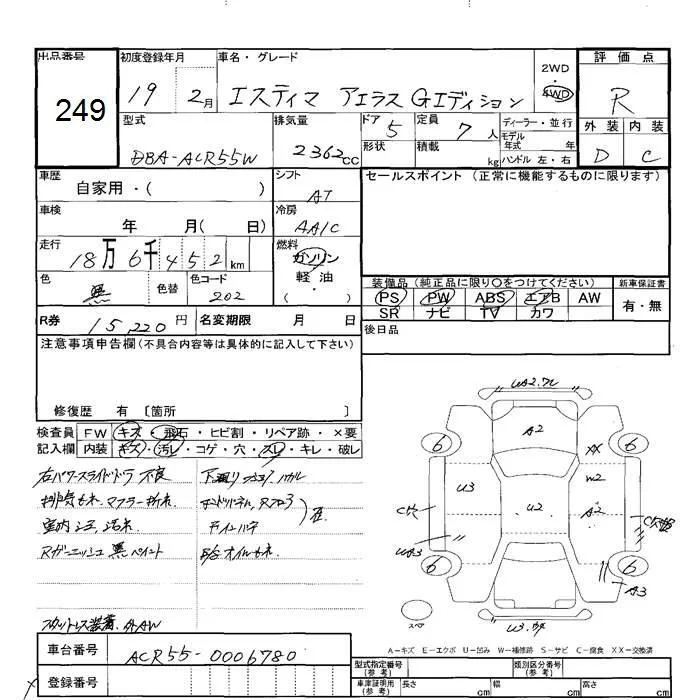 出品番号 初度登録年月 車名・グレード 評価点
249
19 2月 エスティマ アエラス Gエディション
2WD
4WD
R
型式 排気量 ドア 5 定員 7人 ディーラー・並行
モデル年式 年
外装 内装
DBA-ACR55W 2362cc 形状 積載 kg ハンドル 左・右
D C
車歴 自家用・( ) シフト AT
セールスポイント (正常に機能するものに限ります)
車検 年 月( 日) 冷房 AA/C
走行 18万6千452km 燃料 ガソリン
軽油
( )
色 黒 色替 色コード 202
装備品(純正品に限り○をつけてください) 新車保証書
PS PW ABS エアB AW 有・無
SR ナビ TV カワ
R券 15,220円 名変期限 月 日
後日品
注意事項申告欄(不具合内容等は具体的に記入して下さい)
修復歴 有 〔箇所 〕
検査員 FW キズ・飛石・ヒビ割・リペア跡・×要
記入欄 内装 キズ・汚レ・コゲ・穴・スレ・キレ・破レ
右パワースライドドラ 不良
排気もれ、マフラー折れ
Rガーニッシュ 黒ペイント
オイルもれ
UA2.ワレ
A2
XX
6
6
U3
m2
C穴
U2
A2
UA3
6
6
A3
スペア
A-キズ E-エクボ U-凹み W-補修跡 S-サビ C-腐食 XX-交換済
車台番号 ACR55-0006780
型式指定番号(参考) 類別区分番号(参考)
登録番号
車庫証明用(参考) 長さ cm 幅 cm 高さ cm